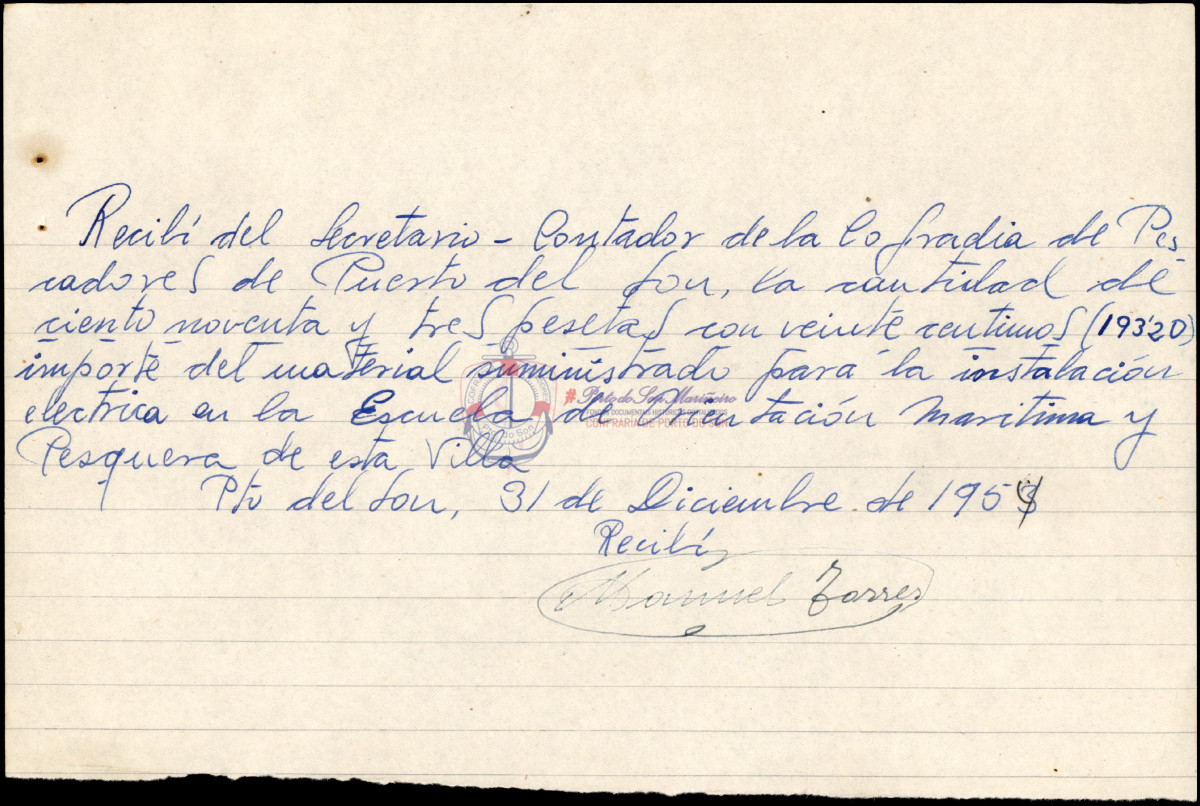 Recibí del Secretario - Contador de la Cofradia de Pes-
cadores de Puerto del Son, la cantidad de
ciento noventa y tres pesetas con veinte centimos (193'20)
importe del material suministrado para la instalación
electrica en la Escuela de Orientación Maritima y
Pesquera de esta Villa
Pto del Son, 31 de Diciembre de 1954
Recibí,
Manuel Torres
# Porto do Son Mariñeiro
FONDOS DOCUMENTAIS HISTÓRICOS DIXITALIZADOS
CONFRARÍA DE PORTO DO SON
Porto do Son